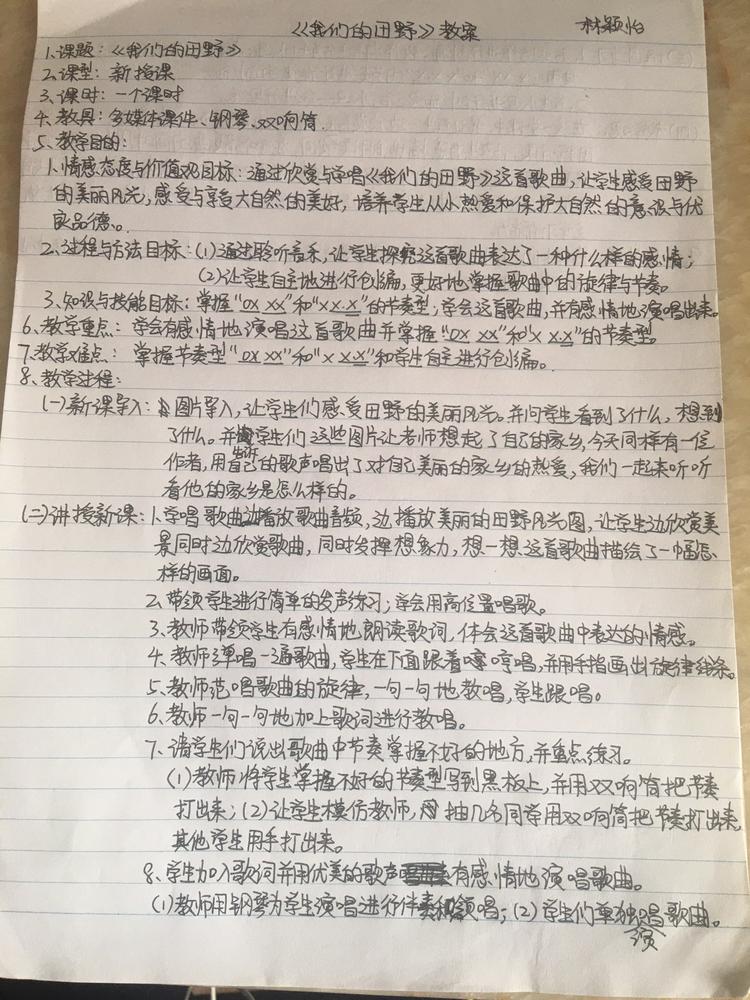 《我们的田野》教案 林颖怡
1、课题：《我们的田野》
2、课型：新授课
3、课时：一个课时
4、教具：多媒体课件、钢琴、双响筒
5、教学目的：
1、情感态度与价值观目标：通过欣赏与学唱《我们的田野》这首歌曲，让学生感受田野
的美丽风光，感受与享受大自然的美好，培养学生从小热爱和保护大自然的意识与优
良品德。
2、过程与方法目标：(1)通过聆听音乐，让学生探究这首歌曲表达了一种什么样的感情；
(2)让学生自主地进行创编，更好地掌握歌曲中的旋律与节奏。
3、知识与技能目标：掌握“0X XX”和“X X.X”的节奏型，学会这首歌曲，并有感情地演唱出来。
6、教学重点：学会有感情地演唱这首歌曲并掌握“0X XX”和“X X.X”的节奏型。
7、教学难点：掌握节奏型“0X XX”和“X X.X”和学生自主进行创编。
8、教学过程：
(一)新课导入：图片导入，让学生们感受田野的美丽风光。并问学生看到了什么，想到
了什么。并告诉学生们这些图片让老师想起了自己的家乡，今天同样有一位
作者，用自己的歌声唱出了对自己美丽的家乡的热爱，我们一起来听听
看他的家乡是怎么样的。
(二)讲授新课：1、学唱歌曲边播放歌曲音频，边播放美丽的田野风光图，让学生边欣赏美
景同时边欣赏歌曲，同时发挥想象力，想一想这首歌曲描绘了一幅怎
样的画面。
2、带领学生进行简单的发声练习；学会用高位置唱歌。
3、教师带领学生有感情地朗读歌词，体会这首歌曲中表达的情感。
4、教师弹唱一遍歌曲，学生在下面跟着哼唱，并用手指画出旋律线条。
5、教师范唱歌曲的旋律，一句一句地教唱，学生跟唱。
6、教师一句一句地加上歌词进行教唱。
7、请学生们说出歌曲中节奏掌握不好的地方，并重点练习。
(1)教师将学生掌握不好的节奏型写到黑板上，并用双响筒把节奏
打出来；(2)让学生模仿教师，抽几名同学用双响筒把节奏打出来，
其他学生用手打出来。
8、学生加入歌词并用优美的歌声有感情地演唱歌曲。
(1)教师用钢琴为学生演唱进行伴奏和领唱；(2)学生们单独演唱歌曲。